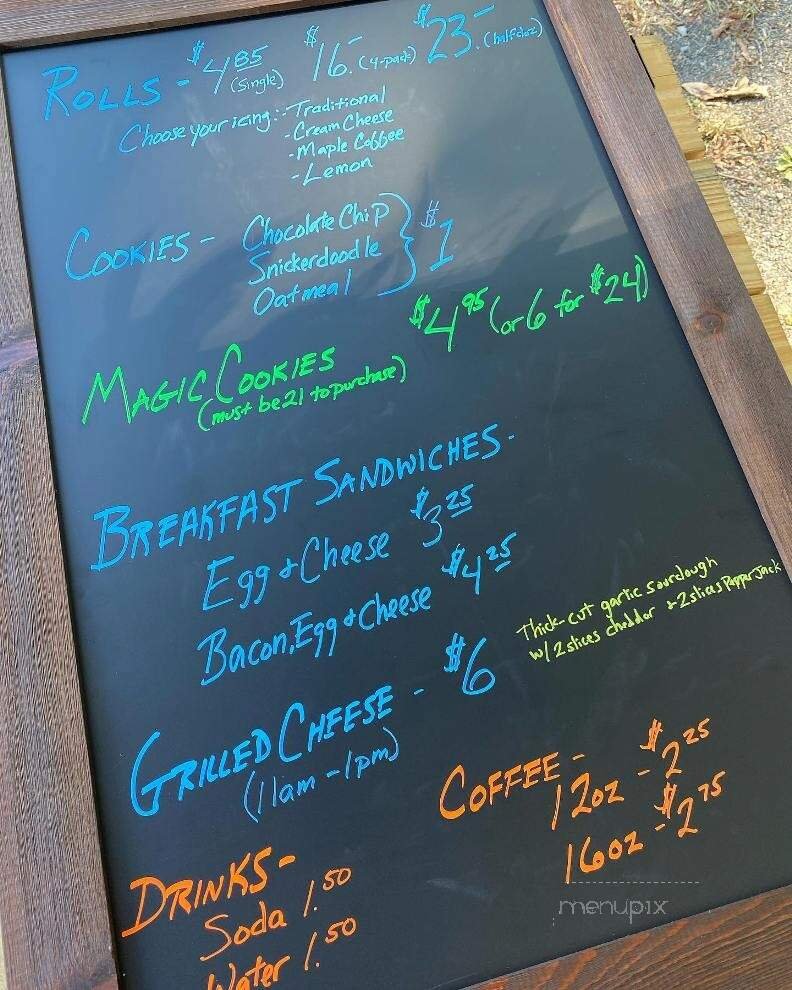 Rolls - $4.85 (single) $16.- (4-pack) $23.- (half doz)
Choose your icing: - Traditional
- Cream Cheese
- Maple Coffee
- Lemon
Cookies - Chocolate Chip
Snickerdoodle } $1
Oatmeal
Magic Cookies $4.95 (or 6 for $24)
(must be 21 to purchase)
Breakfast Sandwiches -
Egg & Cheese $3.25
Bacon, Egg & Cheese $4.25
Grilled Cheese - $6
(11am - 1pm)
Thick-cut garlic sourdough
w/ 2 slices cheddar + 2 slices Pepper Jack
Coffee -
12oz - $2.25
16oz - $2.75
Drinks -
Soda 1.50
Water 1.50
menupix